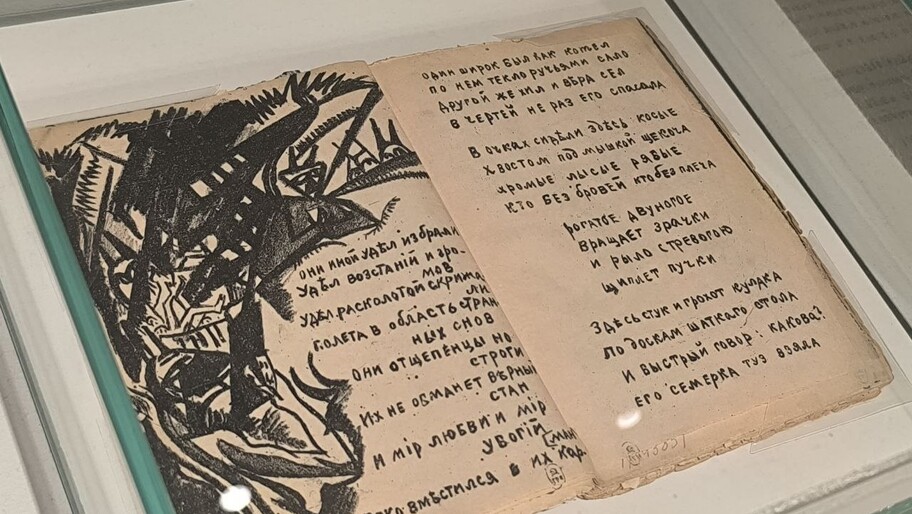 они иной удѣл избрали
удѣл возстаній и гро-
мов
удѣл расколотой скрижа
ли
полета в область стран
ных снов
они отщепенцы но
строги
их не обманет вѣрный
стан
и мір любви и мір
убогій
вмѣстился в их кар
ман
один широк был как котел
по нем текло ручьями сало
другой же хил и вѣра сел
в чертей не раз его спасала
в очках сидѣли здѣсь косые
хвостом под мышкой щекоча
хромые лысые рябые
кто без бровей кто без плеча
рогатое двуногое
вращает зрачки
и рыло стревогою
щиплет пучки
здѣсь стук и грохот кулака
по доскам шаткаго стола
и быстрый говор: какова?
его семерка туз взяла